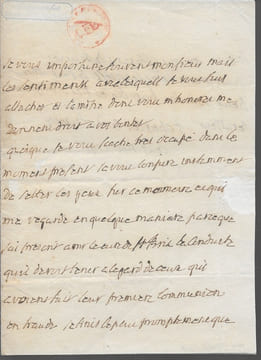 je vous importune souvent monsieur mais
les sentiments avec lesquels je vous suis
attachée et l'amitié dont vous m'honorez me
donnent droit a vos bontés
quoique je vous sache tres occupé dans le
moment present je vous conjure instamment
de jetter les yeux sur ce memoire ce qui
me regarde en quelque maniere parceque
j'ai prescrit a mr le curé de la conduite
qu'il devoit tenir a legard de ceux qui
avoient fait leur premiere communion
en fraude je suis le peu que